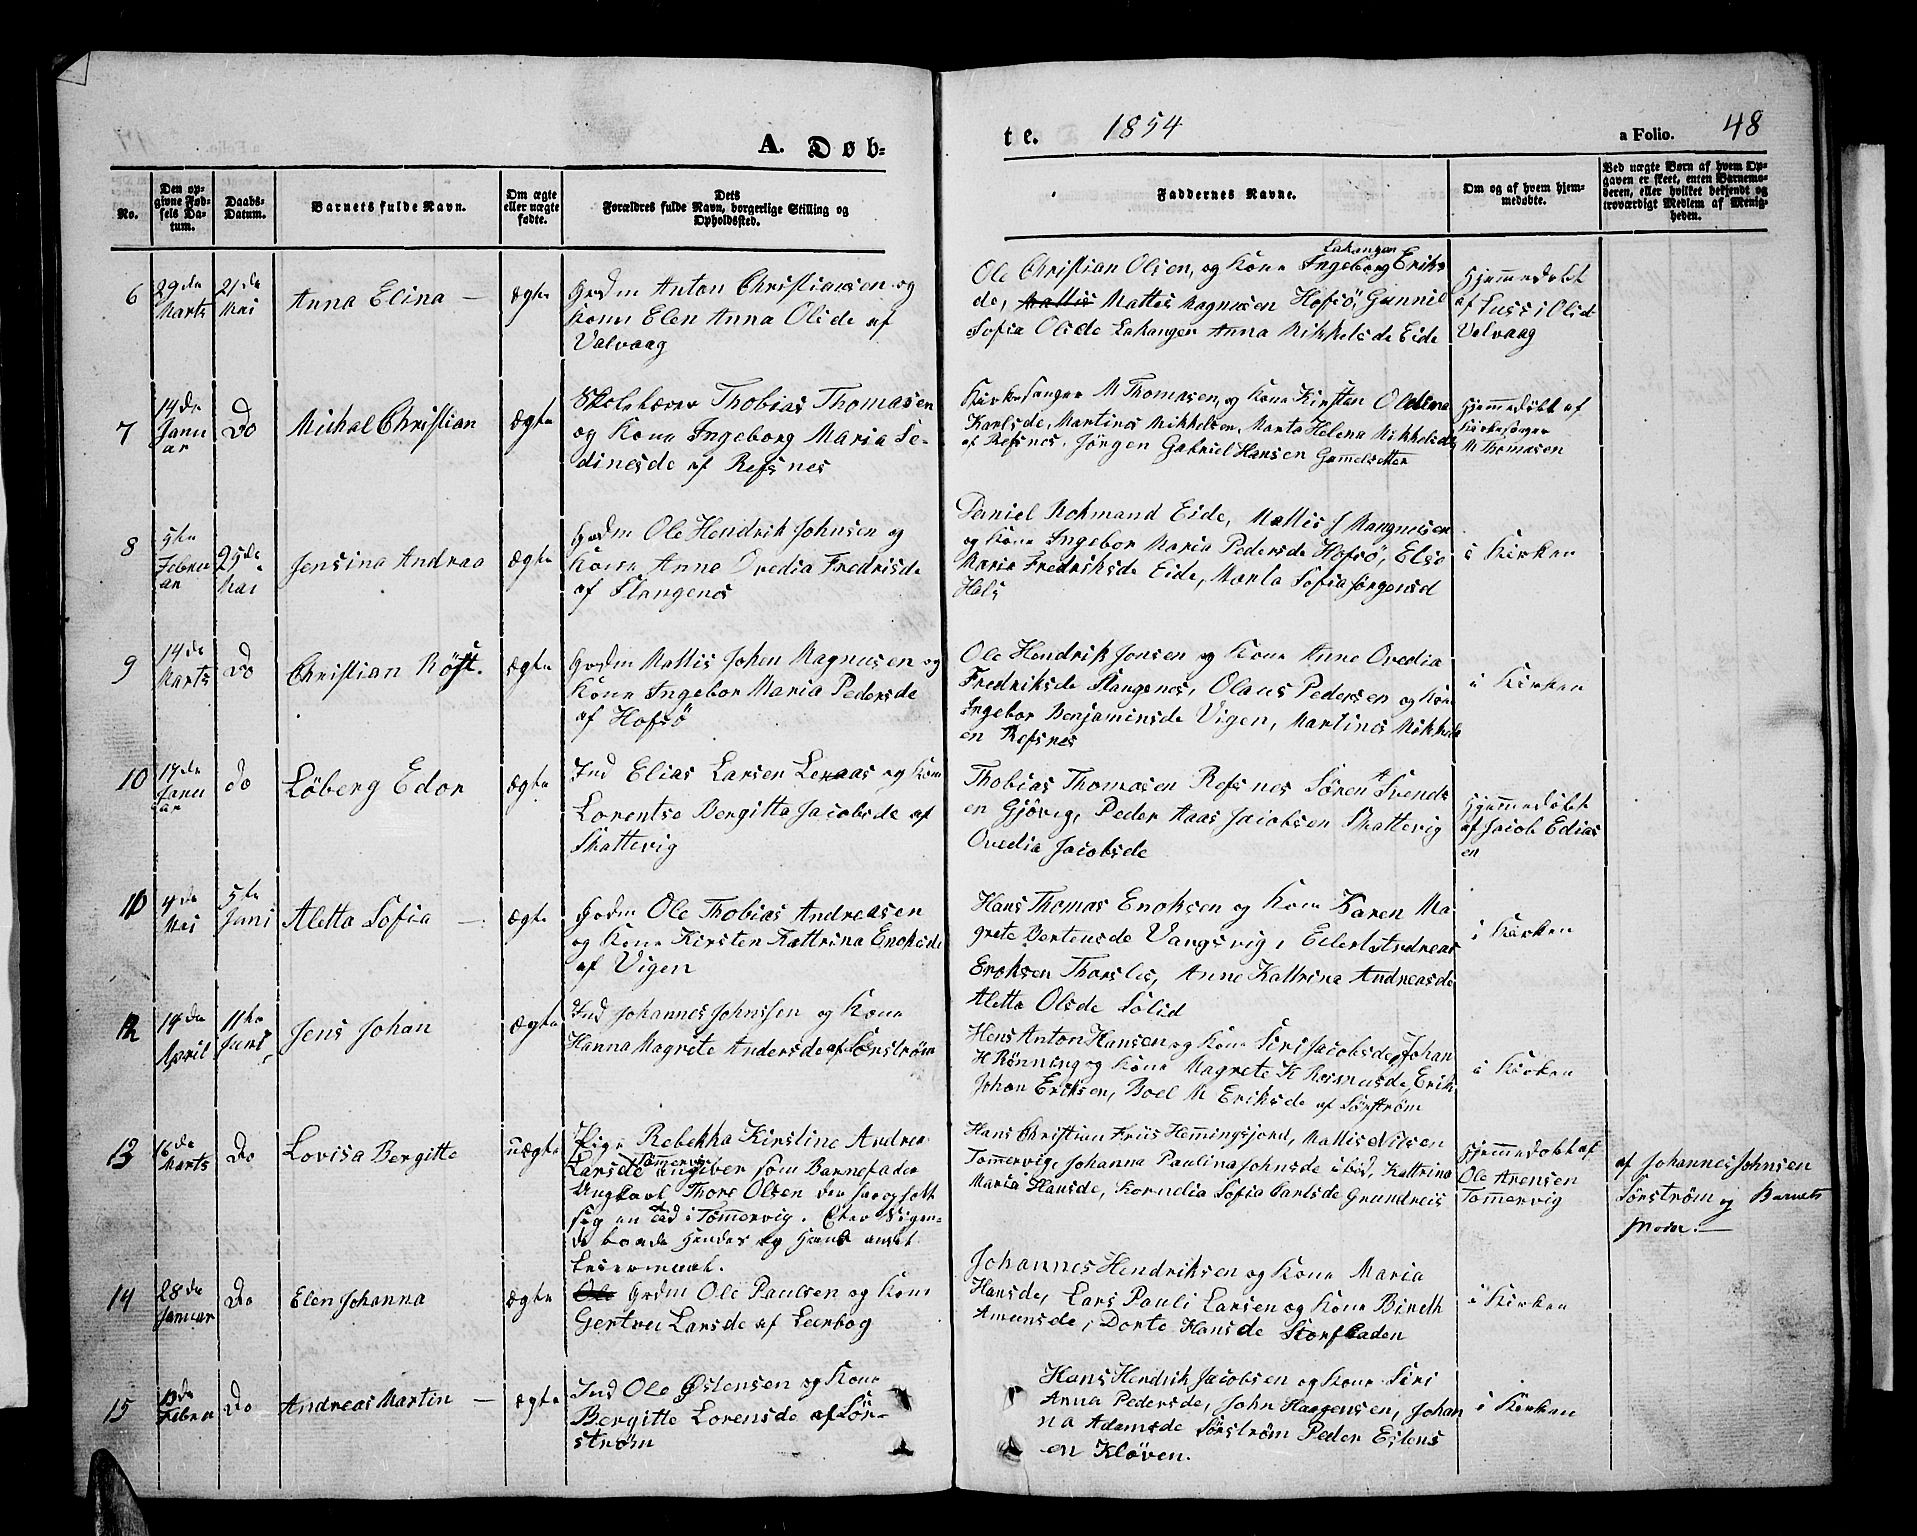 A. Døb-
te. 1854
a Folio. 48
No.
Den opgivne Fødsels Datum.
Daabs-Datum.
Barnets fulde Navn.
Om ægte eller uægte fødte.
Dets Forældres fulde Navn, borgerlige Stilling og Opholdssted.
Faddernes Navne.
Om og af hvem hjemmedøbte.
Ved uægte Børn af hvem Opgaven er skeet, enten Barnemoderen, eller hvilket bekjendt og troværdigt Medlem af Menigheden.
6
29de Marts
21de Mai
Anna Elina
ægte
Grdm Anton Christiansen og
Kone Elen Anna Olsde af
Valvaag
Lakangen
Ole Christian Olsen, og Kone Ingeborg Eriks
de, Mattis Mattis Magnusen Hofsö, Gunnil
Sofia Olsde Lakangen Anna Mikkelsde Eide
Hjemmedøbt
af Lussi Olsd
Valvaag
7
14de Januar
Do
Michal Christian
ægte
Skolelærer Thobias Thomasen
og Kone Ingeborg Maria Se-
dinesde af Refsnes
Kirkesanger M Thomasen, og Kone Kirsten Oldina
Karlsde, Martines Mikkelsen, Marta Helena Mikkelsde
af Refsnes, Jörgen Gabriel Hansen Gammelsetter
Hjemmedöbt af
Kirkesanger
M Thomasen
8
5te Februar
25de Mai
Jensina Andrea
ægte
Grdm Ole Hendrik Johnsen og
Kone Anne Ovedia Fredrisde
af Slangenes
Daniel Rokmand Eide, Mattis J Mangnusen
og Kone Ingebor Maria Pedersde Hofsö, Else
Maria Fredriksde Eide, Marta Sofia Jørgensd
Hals
i Kirken
9
14de Marts
Do
Christian Röst.
ægte
Grdm Mattis Johen Magnusen og
Kone Ingebor Maria Pedersde
af Hofsö
Ole Hendrik Jonsen og Kone Anne Ovedia
Fredriksde Slangenes, Olaus Pedersen og Kone
Ingebor Benjaminsde Vigen, Martines Mikkels
en Refsnes
i Kirken
10
14de Januar
do
Löberg Edor
ægte
Ind Elias Larsen Lenaas og Kone
Lorentse Bergitta Jacobsde af
Skattevig
Thobias Thomasen Refsnes Sören A Svends
en Gjövig, Peder Aaas Jacobsen Skattevig
Ovedia Jacobsde
Hjemmedöbt
af Jacob Edias
en
11
4de Mai
5te Juni
Aletta Sofia
ægte
Grdm Ole Thobias Andreasen
og Kone Kirsten Kattrina Enoksde
af Vigen
Hans Thomas Enoksen og Kone Karen Ma-
grete Bertensde Vangsvig, Eilert Andreas
Enoksen Thorsles, Anne Kattrina Andreasde
Aletta Olsde Solid
i Kirken
12
14de April
11te Juni
Jens Johan
ægte
Ind Johannes Johnssen og Kone
Hanna Magrete Andersde af Sørstrøm
Hans Anton Hansen og Kone Siri Jacobsde, Johan
H Rönning og Kone Magrete K Rasmusde, Erik
Johan Eriksen, Boel M Eriksde af Sörström
i Kirken
13
16de Marts
Do
Lovisa Bergitte
uægte
Pige Rebekka Kirstine Andrea
Tømmervig
Larsde angiver som Barnefader
Ungkarl Thore Olsen
sig en Tid i Tømmervig. Efter Sigen-
de baade Hendes og Hans andet
Leiermaal.
Hans Christian Friis Hemmingsjord, Mattis Nilsen
Tømmervig, Johanna Paulina Johnsde ibid, Kattrina
Maria Hansde, Kornelia Sofia Carlsde Grundreis
Hjemmedøbt af
Ole Arensen
Tømmervig
af Johannes Johnsen
Sørstrøm og Barnets
Moder.
14
28de Januar
Do
Elen Johanna
ægte
Ole Grdm Ole Paulsen og Kone
Gertrue Larsde af Leerbog
Johannes Hendriksen og Kone Maria
Hansde, Lars Pauli Larsen og Kone Bireth
Amunsde, Dorte Hansde Storsladen
i Kirken
15
13de Febru
Do
Andreas Martin
ægte
Ind Ole Østensen og Kone
Bergitte Lorensde af Sör-
strøm
Hans Hendrik Jacobsen og Kone Siri
Anna Pedersde, John Haagensen, Johan
na Adamsde Sørstrøm Peder Estens
en Klöven.
i Kirken